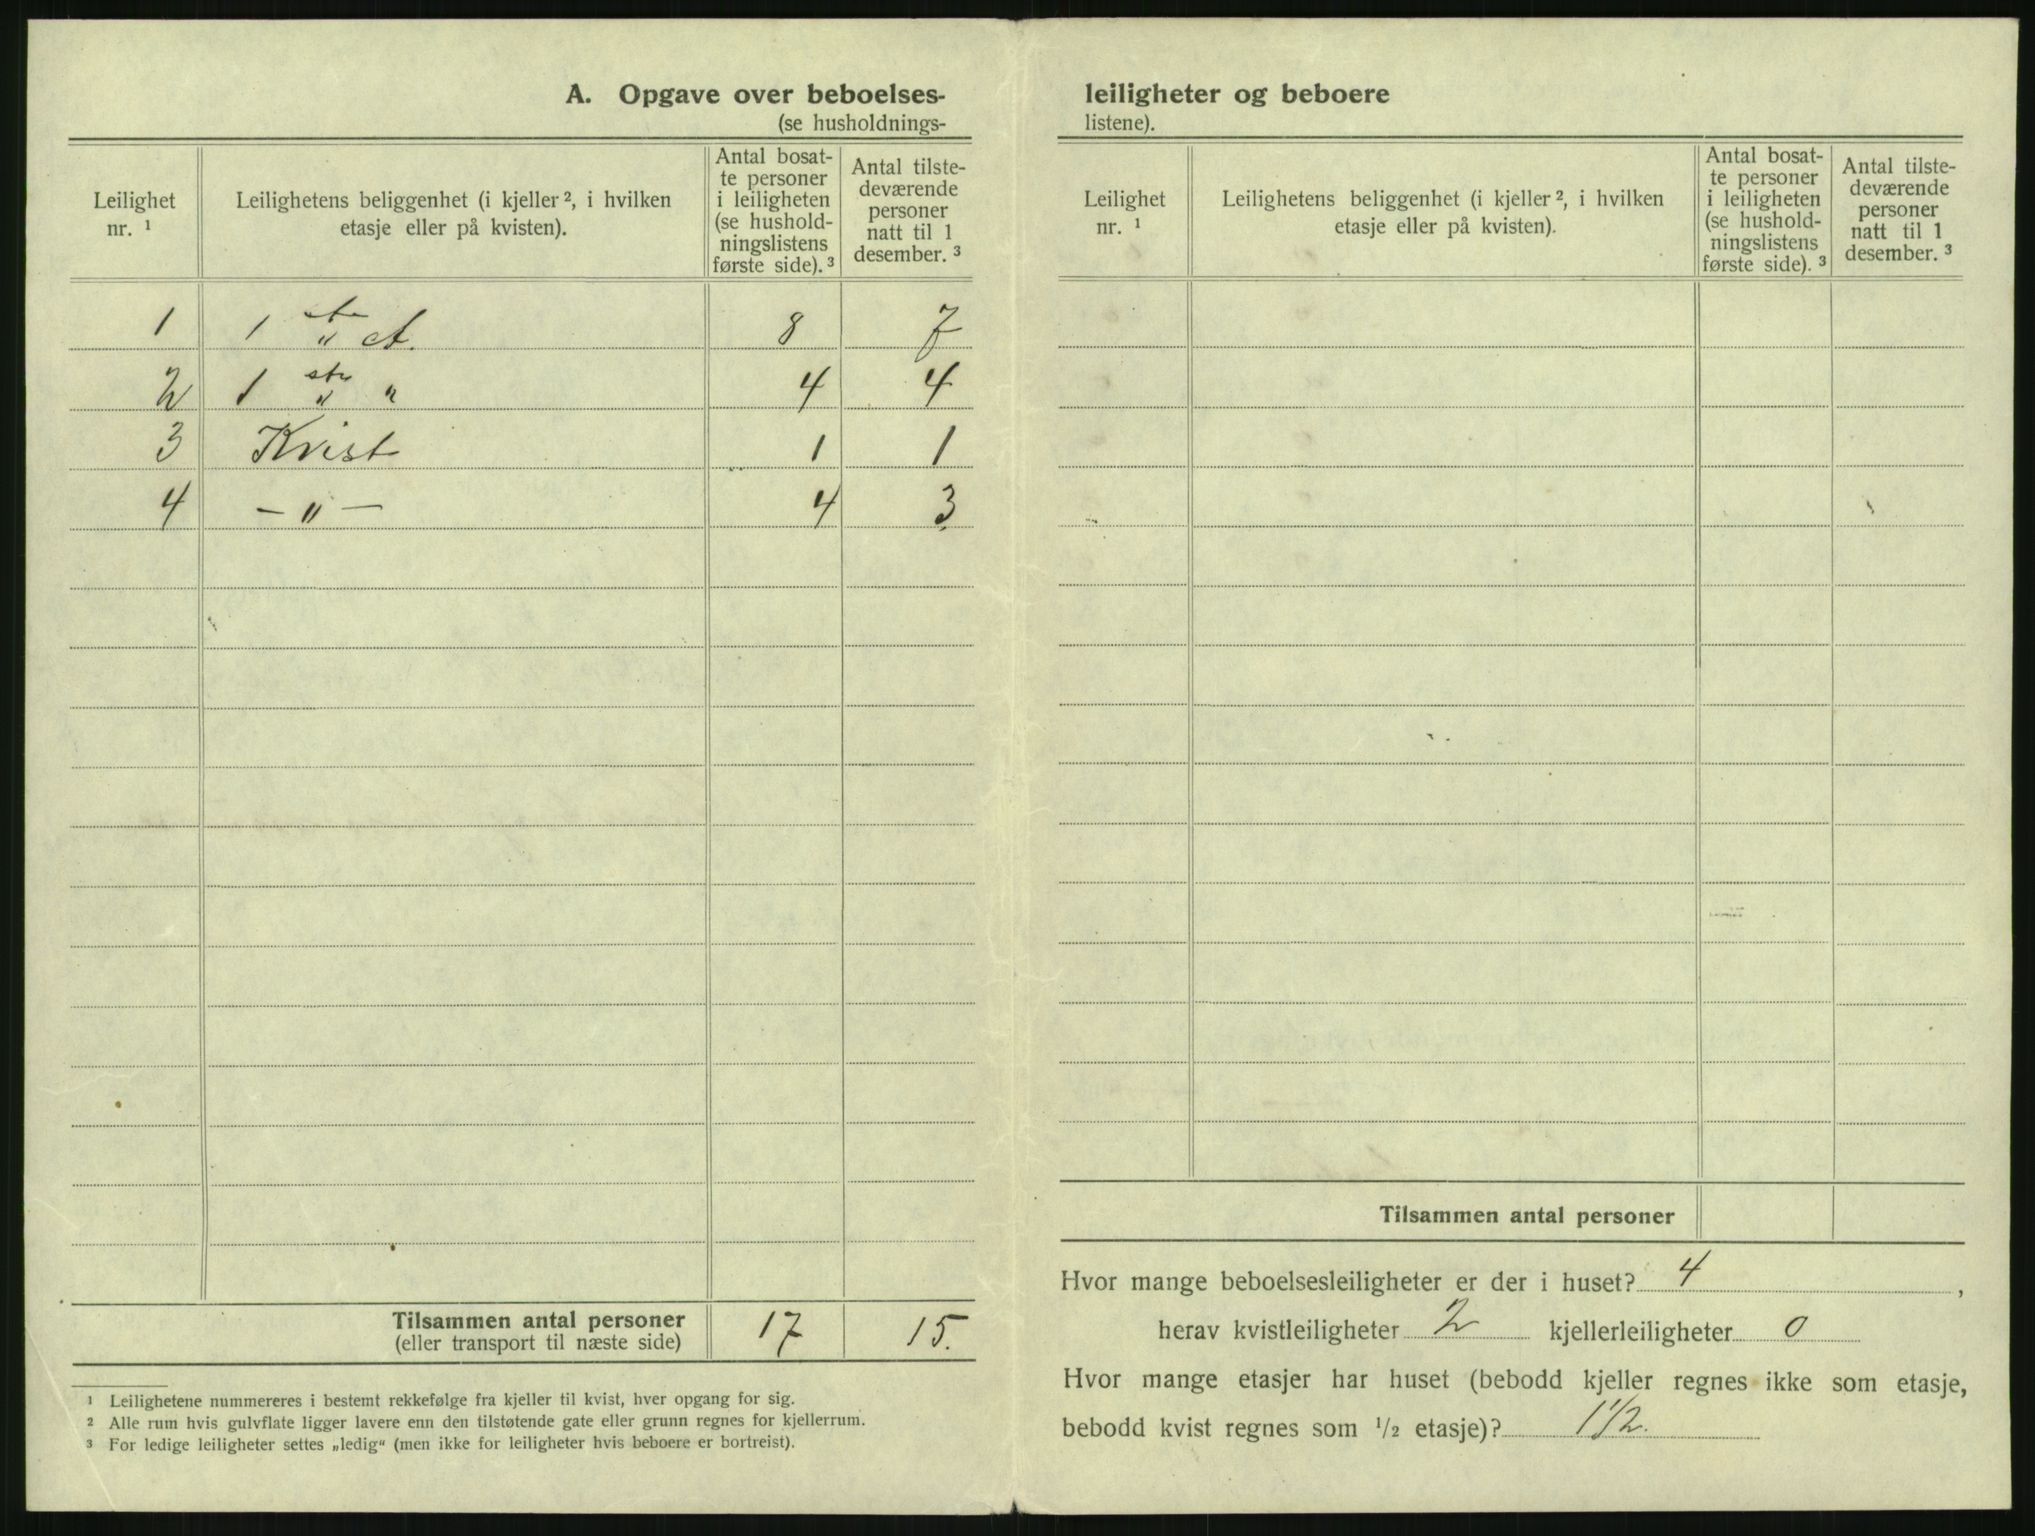 A. Opgave over beboelses-
(se husholdnings-
Leilighet nr. ¹
Leilighetens beliggenhet (i kjeller ², i hvilken etasje eller på kvisten).
Antal bosat-
te personer
i leiligheten
(se hushold-
ningslistens
første side). ³
Antal tilste-
deværende
personer
natt til 1
desember. ³
1 1 ste " et. 8 7
2 1 ste " " 4 4
3 Kvist 1 1
4 – " – 4 3
Tilsammen antal personer 17 15.
(eller transport til næste side)
¹ Leilighetene nummereres i bestemt rekkefølge fra kjeller til kvist, hver opgang for sig.
² Alle rum hvis gulvflate ligger lavere enn den tilstøtende gate eller grunn regnes for kjellerrum.
³ For ledige leiligheter settes „ledig“ (men ikke for leiligheter hvis beboere er bortreist).
leiligheter og beboere
listene).
Leilighet nr. ¹
Leilighetens beliggenhet (i kjeller ², i hvilken etasje eller på kvisten).
Antal bosat-
te personer
i leiligheten
(se hushold-
ningslistens
første side). ³
Antal tilste-
deværende
personer
natt til 1
desember. ³
Tilsammen antal personer
Hvor mange beboelsesleiligheter er der i huset? 4 ,
herav kvistleiligheter 2 kjellerleiligheter 0
Hvor mange etasjer har huset (bebodd kjeller regnes ikke som etasje,
bebodd kvist regnes som ½ etasje)? 1 1/2.